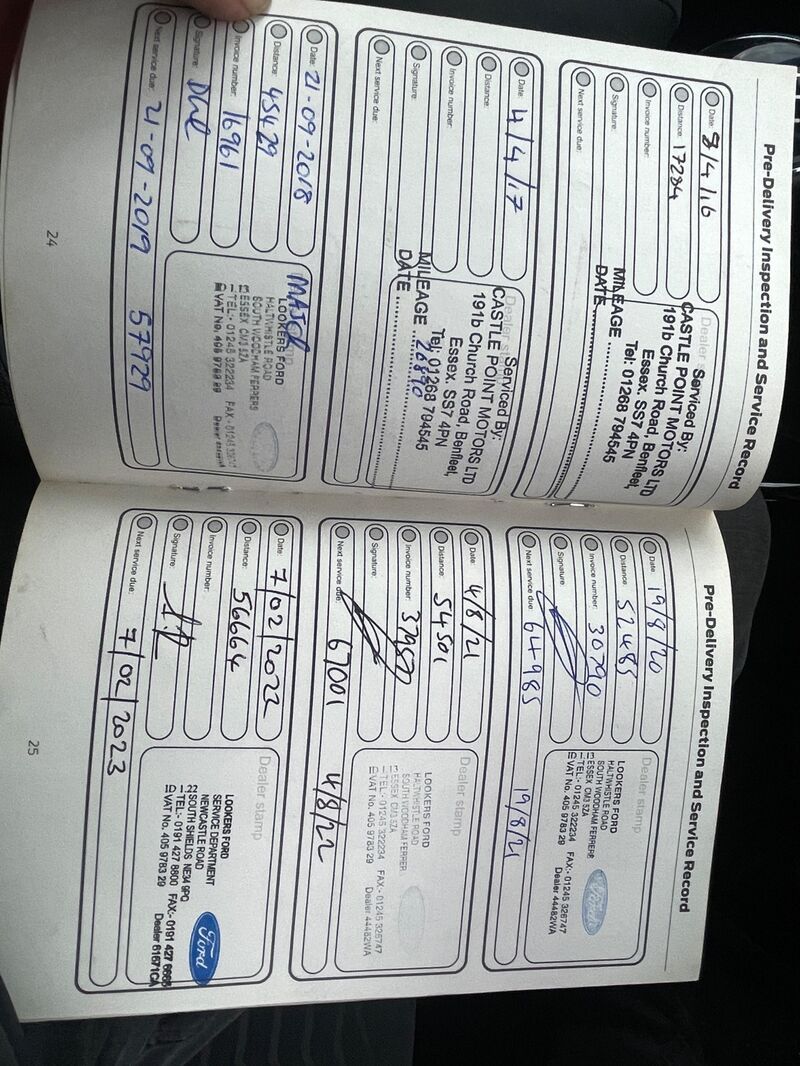 Pre-Delivery Inspection and Service Record
Date: 8/4/16
Distance: 17284
Invoice number:
Signature:
Next service due:
Dealer
Serviced By:
CASTLE POINT MOTORS LTD
191b Church Road, Benfleet,
Essex. SS7 4PN
Tel: 01268 794545
MILEAGE
DATE
Date: 4/4/17
Distance:
Invoice number:
Signature:
Next service due:
Dealer
Serviced By:
CASTLE POINT MOTORS LTD
191b Church Road, Benfleet,
Essex. SS7 4PN
Tel: 01268 794545
MILEAGE 26890
DATE
Date: 21-09-2018
Distance: 45429
Invoice number: 16961
Signature:
Next service due: 21-09-2019 57929
MAJOR
LOOKERS FORD
HALTWHISTLE ROAD
SOUTH WOODHAM FERRERS
ESSEX CM3 5ZA
TEL:- 01245 322234 FAX:- 01245
VAT No. 405 9783 29 Dealer
24
Pre-Delivery Inspection and Service Record
Date: 19/8/20
Distance: 52485
Invoice number: 30790
Signature:
Next service due: 64985 19/8/21
Dealer stamp
LOOKERS FORD
HALTWHISTLE ROAD
SOUTH WOODHAM FERRERS
ESSEX CM3 5ZA
TEL:- 01245 322234 FAX:- 01245 326747
VAT No. 405 9783 29 Dealer 44482WA
Ford
Date: 4/8/21
Distance: 54501
Invoice number:
Signature:
Next service due: 67001 4/8/22
Dealer stamp
LOOKERS FORD
HALTWHISTLE ROAD
SOUTH WOODHAM FERRER
ESSEX CM3 5ZA
TEL:- 01245 322234 FAX:- 01245 326747
VAT No. 405 9783 29 Dealer 44482WA
Date: 7/02/2022
Distance: 56664
Invoice number:
Signature:
Next service due: 7/02/2023
Dealer stamp
LOOKERS FORD
SERVICE DEPARTMENT
NEWCASTLE ROAD
SOUTH SHIELDS NE34 9PQ
TEL:- 0191 427 8800 FAX:- 0191 427 6666
VAT No. 405 9783 29 Dealer 61671CA
Ford
25